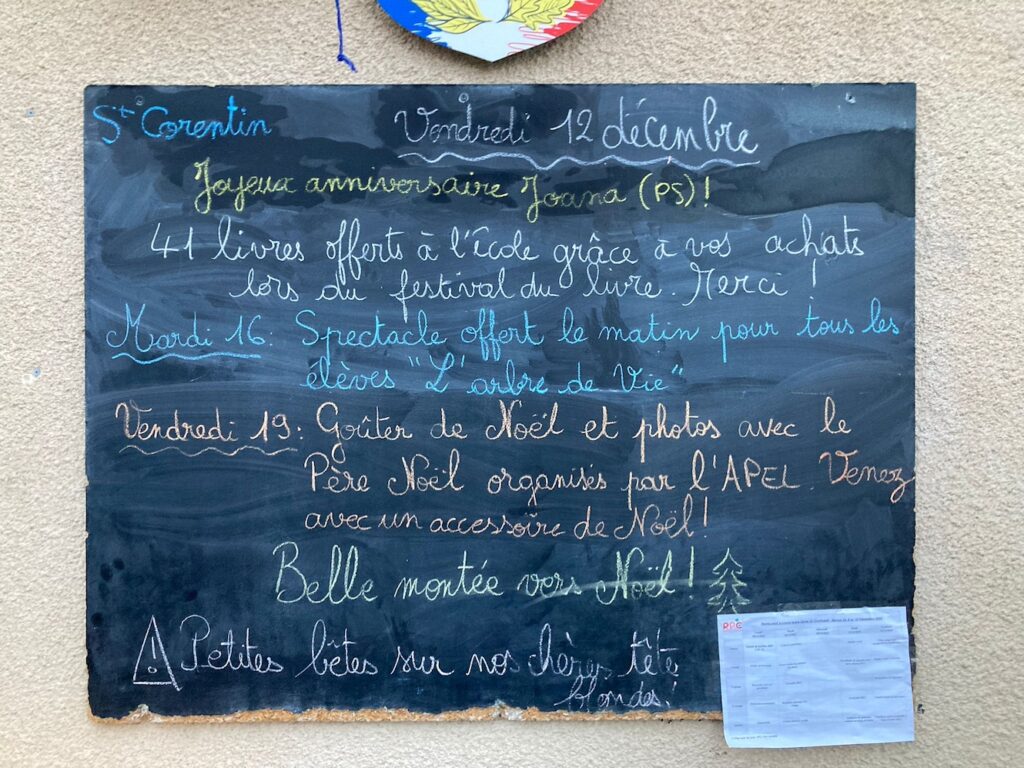 St Corentin
Vendredi 12 décembre
Joyeux anniversaire Joana (PS) !
41 livres offerts à l'école grâce à vos achats
lors du festival du livre. Merci !
Mardi 16 : Spectacle offert le matin pour tous les
élèves "L'arbre de Vie"
Vendredi 19 : Goûter de Noël et photos avec le
Père Noël organisés par l'APEL. Venez
avec un accessoire de Noël !
Belle montée vers Noël !
Petites bêtes sur nos chères tête
blondes !